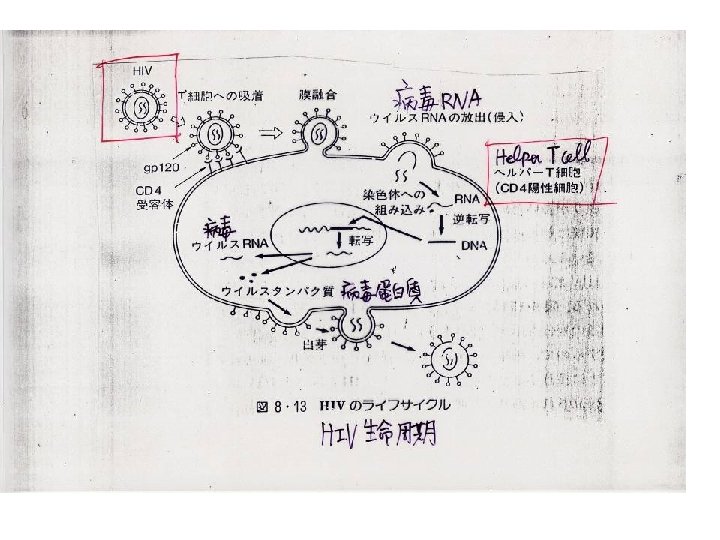 HIV
T細胞への吸着
膜融合
病毒RNA
ウイルスRNAの放出(侵入)
gp120
CD4
受容体
Helper T cell
ヘルパーT細胞
(CD4陽性細胞)
染色体への
組み込み
RNA
逆転写
DNA
転写
病毒
ウイルスRNA
ウイルスタンパク質
病毒蛋白質
出芽
図 8・13 HIVのライフサイクル
HIV生命周期